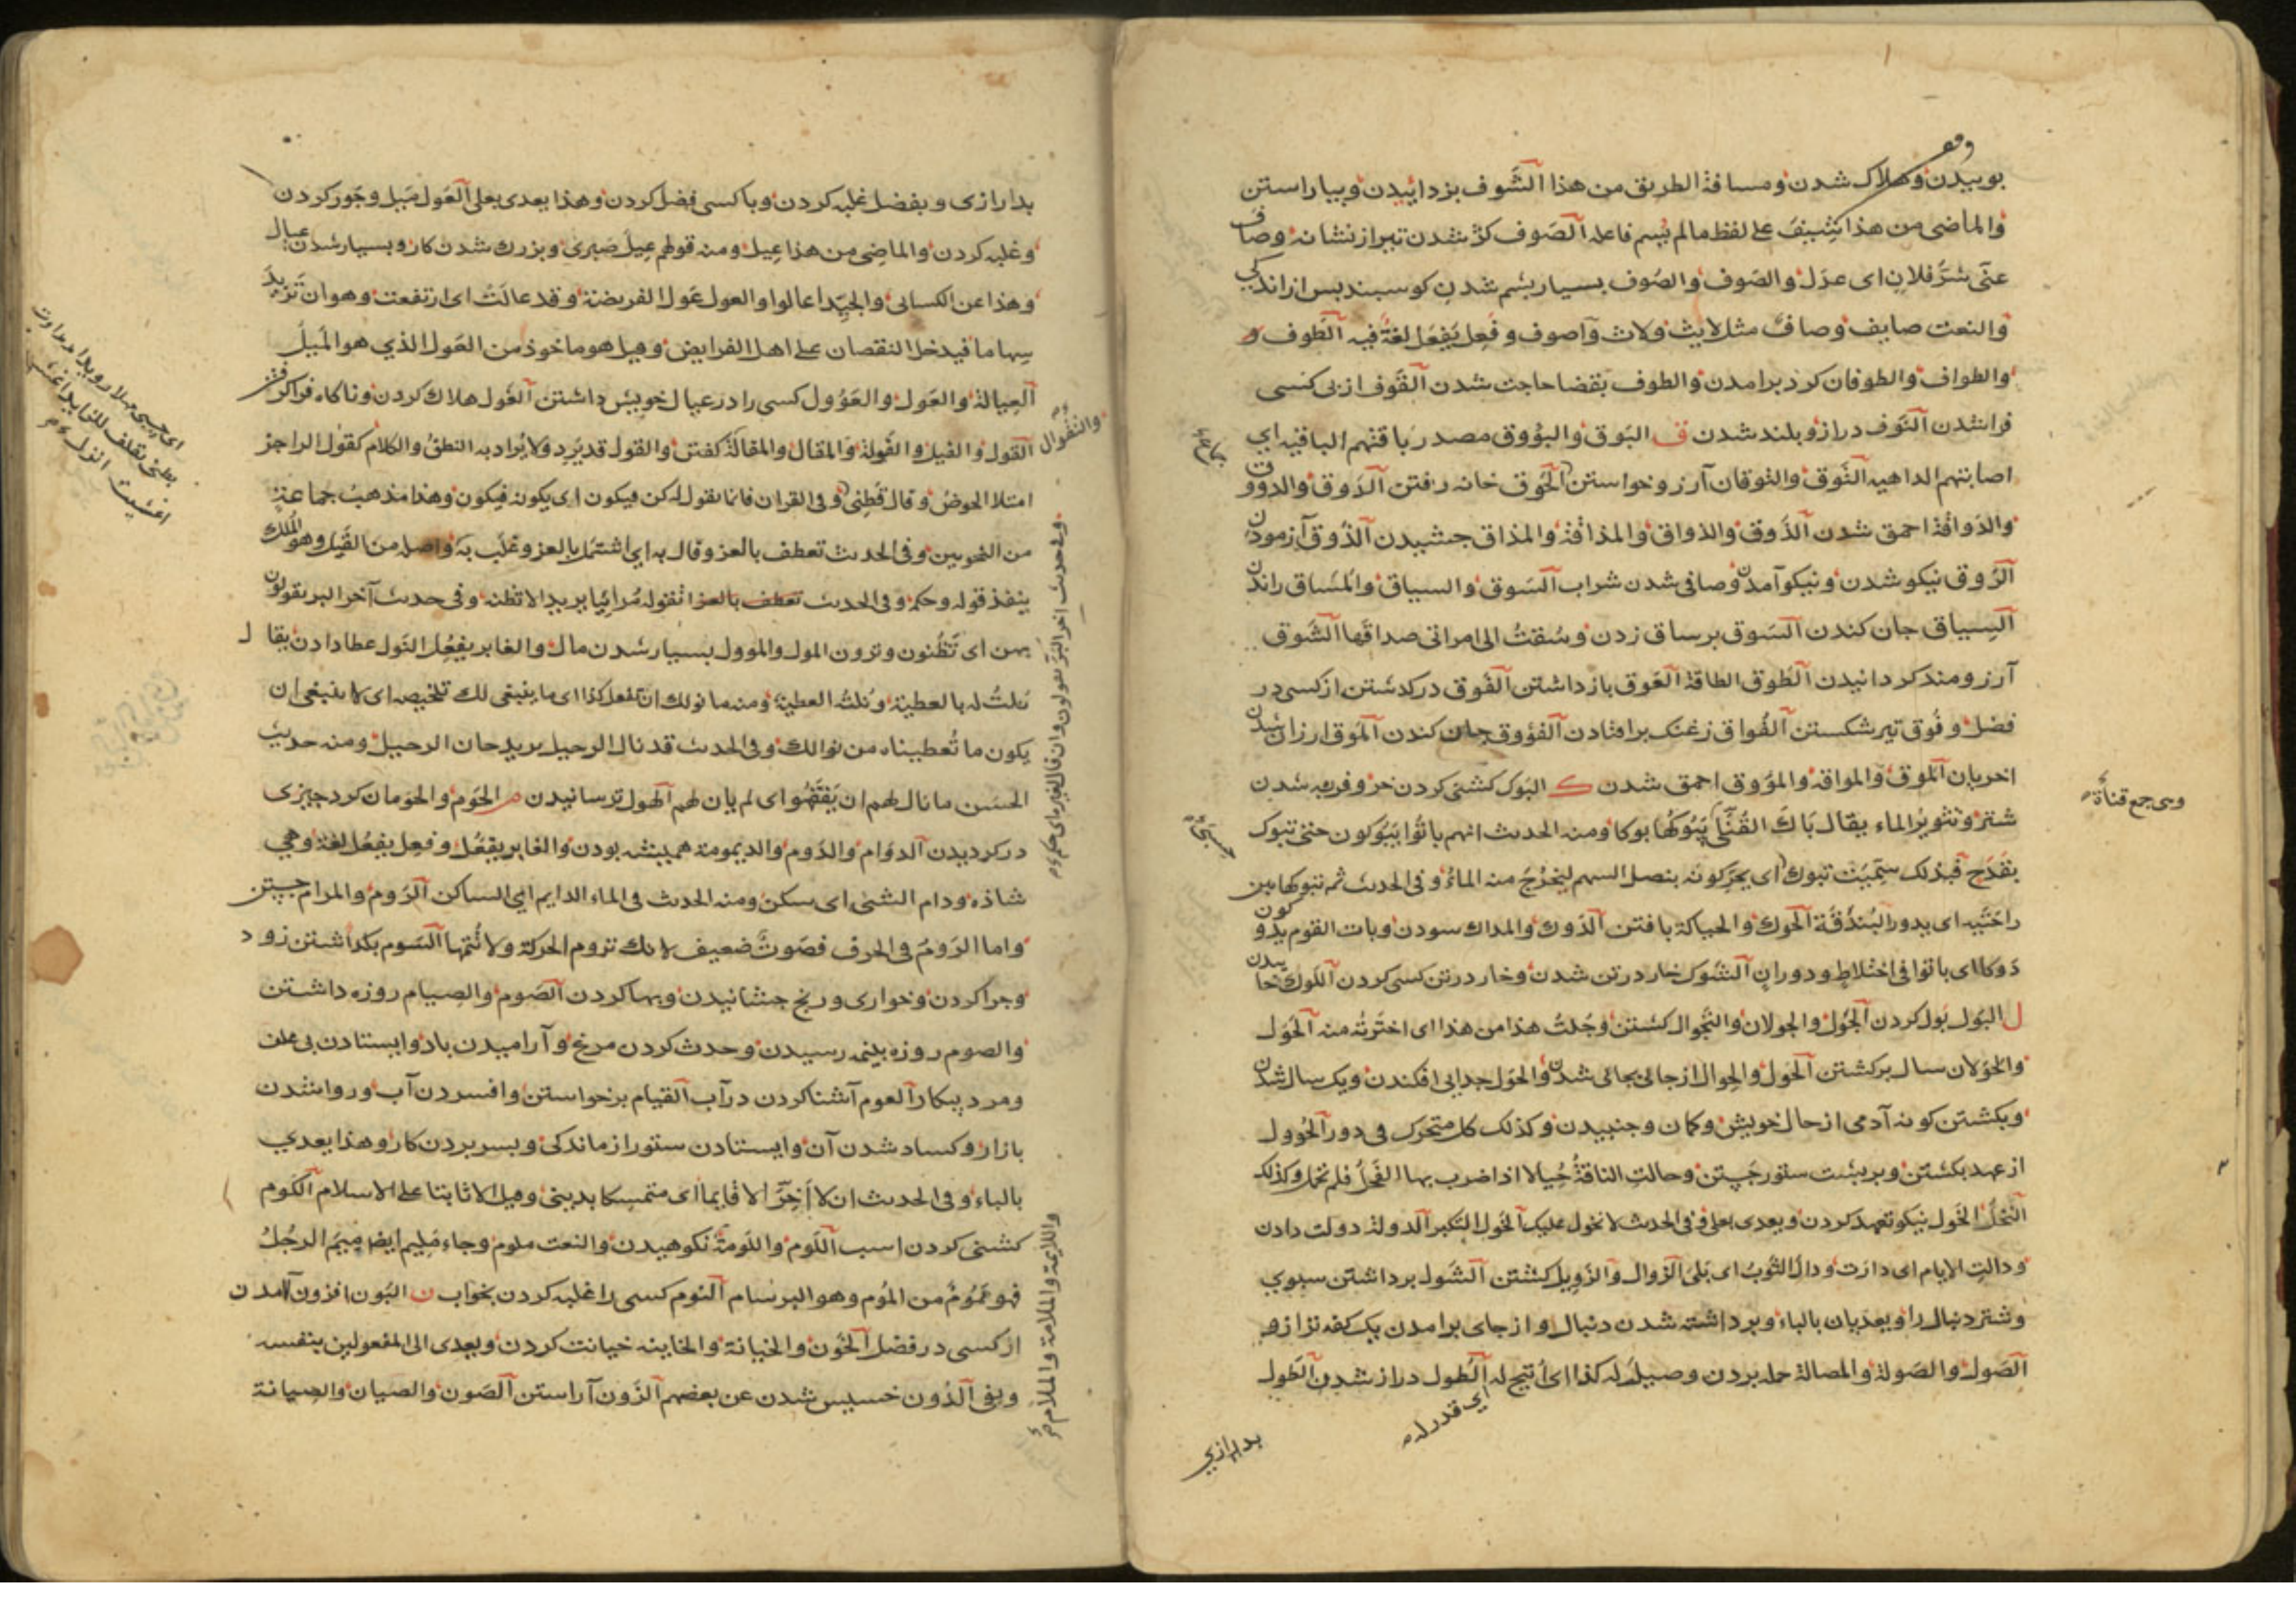 بوييدن وهلاك شدن ومسافة الطريق من هذا الشوف بزدائيدن وبياراستن
والماضى من هذا شِيفَ على لفظ مالم يُسم فاعله الصَوف كژ شدن تير از نشانه وصاف
عنّى شرُّ فلانٍ اى عدَل والصَوف والصُوف بسيار پشم شدن كوسبند پس از اندكى
والنعت صايف وصافٌ مثل لايث ولاث وآصوف وفَعِل يَفعَل لغةٌ فيه الطَوف و
والطواف والطوفان كرد برامدن والطوف بقضا حاجت شدن القَوف از پى كسى
فراشدن النَوف دراز وبلند شدن ف البَوق والبُؤوق مصدر باقتهم الباقيه اي
اصابتهم الداهيه التَوق والتوقان آرزو خواستن الحَوق خانه رفتن الدَوق والدووق
والدَواقة احمق شدن الذَوق والذواق والمذاقة والمذاق چشيدن الذَوق آزمودن
الرَوق نيكو شدن ونيكو آمدن وصافى شدن شراب السَوق والسياق والمَساق راندن
السِياق جان كندن السَوق برساق زدن وسُقتُ الى امراتى صداقَها الشَوق
آرزومند كردانيدن الطَوق الطاقة العَوق بازداشتن الفَوق دركذشتن از كسى در
فضل وفُوق تير شكستن الفُواق زغنك برافتادن الفؤوق جان كندن المَوق ارزان شدن
اخريان الموق والمواقه والمؤوق احمق شدن ك البَوك كشنى كردن خر وفربه شدن
شتر وتثوير الماء يقال بَاكَ القُنِىَّ يَبُوكُها بوكا ومنه الحدث انهم باتُوا يَبُوكون حِسْىَ تبوك
بقَدَحٍ فبذلك سمّيَت تبوك اى يحرّكونه بنصل السهم ليخرُجَ منه الماءُ وفى الحدث ثم تبوكها بين
راحَتَيه اى يدور البُندُقة الحَوك والحياكة بافتن الدَوك والمداك سودن وبات القوم يدوكون
دَوكا اى باتوا فى اختلاط ودوران الشَوك خار درتن شدن وخار درتن كسى كردن اللَوك خاييدن
ل البَول بَول كردن الجَول والجولان والتَجوال كشتن وجُلتُ هذا من هذا اى اخترته منه الحَول
والحَوَلان سال بركشتن الحَول والحِوال از جائى بجائى شدن والحَول جدايى افكندن ويك سال شدن
وبكشتن كونه آدمى از حال خويش وكمان وجنبيدن وكذلك كل متحرك فى دور الحُوول
از عهد بكشتن وبر پشت ستور جَستن وحالت الناقةُ حِيالا اذا ضرب بها الفَحلُ فلم تحمل وكذلك
النخلُ الخَول نيكو تعهد كردن ويعدى بعلى وفى الحدث لا نخول عليك الخَول التكبر الدولة دولت دادن
ودالت الايام اى دارَت ودالَ الثَوبُ اى بَلىَ الزوال والزَويل كشتن الشَول برداشتن سبوي
وشتر دنبال را ويعديان بالباء وبرداشته شدن دنبال واز جاى برامدن يك كفه ترازو
الصَول والصَولة والمصالة حمله بردن وصيلَ له كذا اى اُتيح له الطُول دراز شدن الطَول
اى قدر له
بدارازي
وهى جمع قناة
بدارازى وبفضل غلبه كردن وباكسى فضل كردن وهذا يعدى بعلى العَول مَيل وجَور كردن
وغلبه كردن والماضِى من هذا عِيلَ ومنه قولهم عِيلَ صَبرى وبزرك شدن كار وبسيار شدن عيال
وهذا عن الكسائى والجيّد اعالوا والعول عَول الفريضة وقد عالَتْ اى ارتفعت وهو ان تزيدَ
سِهاما فيدخل النقصان على اهل الفرايض وقيل هو ماخوذ من العَول الذي هو المَيلُ
العِيالة والعَول والعُؤُول كسى را درعيال خويش داشتن الغَول هلاك كردن وناكاه فراكرفتن
القول والقيل والقَولة والمَقال والمقالة كفتن والقول قد يُرد ولا يُراد به النطقُ والكلامُ كقول الراجز
امتلا الحوضُ وقال قَطنِى وفى القران فانما نقول له كن فيكون اى يكونه فيكون وهذا مذهبُ جماعةٍ
من النحويين وفى الحدث تعطف بالعز وقال به اى اشتمل بالعز وغلَب به واصله من القَيل وهو المَلِك
ينفذ قوله وحكمه وفى الحدث تعطف بالعز اتقوله مُرائيا يريد الاتظنه وفى حدث آخر البر تقولون
بهن اى تَظُنون وترون المول والموول بسيار شدن مال والغابر يفعُل النَول عطا دادن يقال
نُلتُ له بالعطية ونُلتُه العطية ومنه ما نولك ان تفعل كذا اى ما ينبغى لك تلخيصه اى لا ينبغى ان
يكون ما تُعطيناه من نوالك وفى الحدث قد نال الرحيل يريد حان الرحيل ومنه حديث
الحسَن ما نال لهم ان يَفقَهُوا اى لم يان لهم الهَول ترسانيدن م الحَوم والحَومان كرد چيزى
دركرديدن الدوام والدَوم والديمومة هميشه بودن والغابر يفعُل وفعِل يفعُل لغة وهي
شاذه ودام الشئ اى سكن ومنه الحدث فى الماء الدايم اى الساكن الرَوم والمرام جستن
واما الرَومُ فى الحرف فصَوتٌ ضعيف لانك تروم الحركة ولا تُتمها السَوم بكذاشتن زود
وچرا كردن وخوارى ورنج چشانيدن وبها كردن الصَوم والصِيام روزه داشتن
والصوم روزه بنيمه رسيدن وحدث كردن مرغ وآراميدن باد وايستادن بى علف
ومرد بيكار العوم آشنا كردن درآب القيام برخواستن وافسردن آب وروا شدن
بازار وكساد شدن آن وايستادن ستور از ماندكى وبسر بردن كار وهذا يعدي
بالباء وفى الحدث ان لا اَخِرَّ الا قايما اى متمسكا بدينى وقيل الا ثابتا على الاسلام الكَوم
كشنى كردن اسب اللَوم واللَومة نكوهيدن والنعت ملوم وجاء مَليم ايضا مِيمَ الرجُلُ
فهو مَمُوم من المُوم وهو البرسام النَوم كسى را غلبه كردن بخواب ن البَون افزون آمدن
از كسى در فضل الخَون والخيانة والخاينه خيانت كردن ويعدى الى المفعولين بنفسه
وبفى الدُون خسيس شدن عن بعضهم الزَون آراستن الصَون والصيان والصِيانة
والتقوال
وفى حديث اخر البَرَّ تقولون
واللائمة والملامة والملام